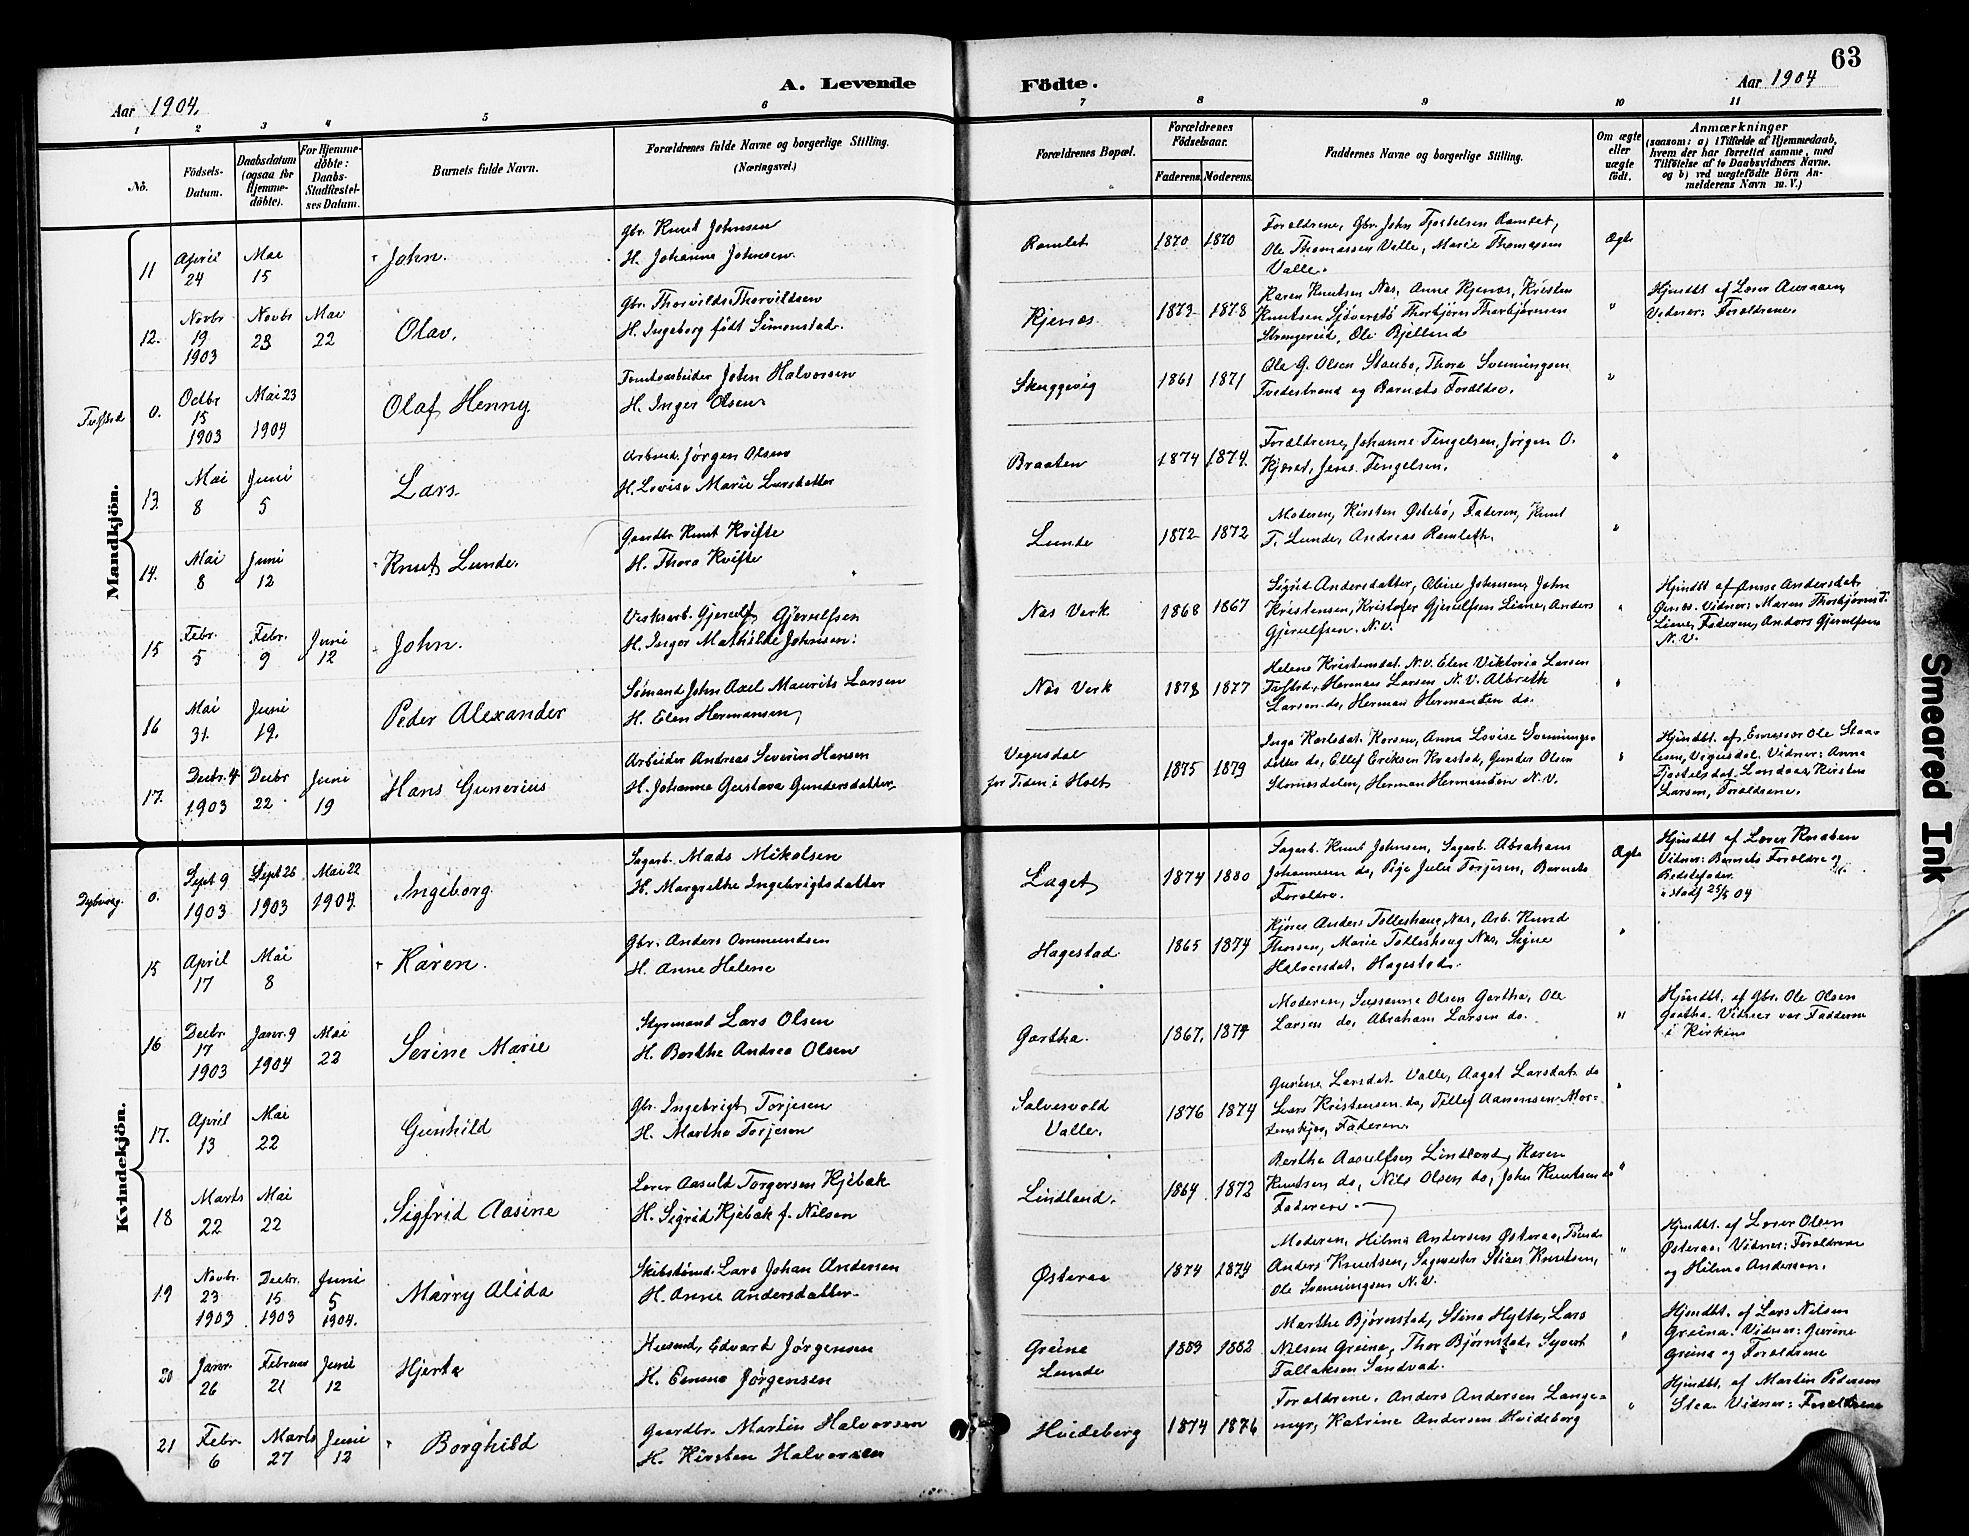 63
A. Levende Födte.
Aar 1904.
Aar 1904
1 2 3 4 5 6 7 8 9 10 11
No.
Födsels-Datum.
Daabsdatum (ogsaa for Hjemme-döbte).
For Hjemme-döbte: Daabs-Stadfæstel-ses Datum.
Barnets fulde Navn.
Forældrenes fulde Navne og borgerlige Stilling. (Næringsvei.)
Forældrenes Bopæl.
Forældrenes Födselsaar.
Faderens. Moderens.
Faddernes Navne og borgerlige Stilling.
Om ægte eller uægte födt.
Anmærkninger (saasom: a) i Tilfælde af Hjemmedaab, hvem der har forrettet samme, med Tilföielse af to Daabsvidners Navne, og b) ved uægtefödte Börn An-melderens Navn m. V.)
Mandkjön.
11 April 24 Mai 15 John. Gbr. Knut Johnsen
H. Johanne Johnsen. Ramlet 1870 1870 Forældrene, Gbr. John Tjostelsen Ramlet,
Ole Thomassen Valle, Marie Thomassen
Valle. Ægte
12. Novbr 19 1903 Novbr 23 Mai 22 Olav. Gbr. Thorvild Thorvildsen
H. Ingeborg födt Simonstad. Kjenæs 1873 1878 Karen Knutsen Næs, Anne Kjenæs, Kristen
Knutsen Sjöverstö Thorbjörn Thorbjørnsen
Strengereid, Ole Bjelland " Hjemdbt af Lærer Aamaas,
Vidner: Forældrene.
0. Octbr 15 1903 Mai 23 1904 Olaf Henny. Tomtearbeider John Halvorsen
H. Inger Olsen Skuggevig 1861 1871 Ole G. Olsen Staubø, Thora Svenningsen
Tvedestrand og Barnets Forældre. "
13. Mai 8 Juni 5 Lars. Arbeid. Jørgen Olsen
H. Lovise Marie Larsdatter Braaten 1874 1874 Forældrene, Johanne Tengelsen, Jørgen O.
Jens Tengelsen. "
14. Mai 8 Juni 12 Knut Lunde. Gaardbr Knut Kvifte
H. Thora Kvifte Lunde 1872 1872 Moderen, Kirsten Østebø, Faderen, Knut
T. Lunde, Andreas Ramleth. "
15 Febr. 5 Febr. 9 Juni 12 John. Verksarb. Gjerulf Gjerulfsen
H. Inger Mathilde Johnsen. Næs Verk 1868 1867 Sigrid Andersdatter, Oline Johnsen, John
Kristensen, Kristofer Gjerulfsen Liene, Anders
Gjerulfsen. N.V. " Hjmdbt af Anne Andersdat.
Vidner: Maren Thorbjørns
Liene, Faderen, Anders Gjerulfsen
N.V.
16 Mai 31. Juni 19. Peder Alexander Sømand John Axel Maurits Larsen
H. Elen Hermansen Næs Verk 1878 1877 Helene Kristensdat. N.V. Elen Viktoria Larsen
Herman Larsen N.V. Albreth
Larsen do, Herman Hermansen do. "
17. Decbr. 4 1903 Decbr 22 Juni 19 Hans Gunerius Arbeider Andreas Severin Hansen
H. Johanne Gustava Gundersdatter Vegusdal
for Tiden i Holt 1875 1879 Inga Karlsdat. Anna Lovise Svennings-
datter do, Ellef Eriksen Kvastad, Gunder Olsen
Herman Hermansen N.V. " Hjemdbt. af Ole
Vegusdal. Vidner: Anna
Tjostelsdat. Kirsten
Larsen, Forældrene.
Kvindekjön.
Dybvaag. 0. Sept 9 1903 Sept 26 1903 Mai 22 1904 Ingeborg. Sagarb. Mads Nikolsen
H. Margrethe Ingebrigtsdatter Laget 1874 1880 Sagarb. Knut Johnsen, Sagarb. Abraham
Johannesen do, Pige Julie Torjusen, Barnets
Forældre. Ægte Hjmdbt af Lærer Knaben
Vidner: Barnets Forældre og
Bedstefader.
15 April 17 Mai 8 Karen. Gbr. Anders Ommundsen
H. Anne Helene Hagestad. 1865 1874 Anders Tolleshaug, Næs, Arb. Knud
Thorsen, Marie Tolleshaug Næs, Signe
Halvorsdat. Hagestad. "
16 Decbr. 17 1903 Janr. 9 1904 Mai 22 Serine Marie Styrmand Lars Olsen
H. Berthe Andrea Olsen Gartha. 1867. Moderen, Sussanne Olsen Gartha, Ole
Larsen do, Abraham Larsen do. " Hjmdbt. af Gbr. Ole Olsen
Gartha. Vidner var Fadderne
i Kirken
17. April 13 Mai 22 Gunhild Gbr. Ingebrigt Torjesen
H. Martha Torjesen Salvesvold
Valle. 1876 1874 Gurine Larsdat. Valle, Aagot Larsdat. do
Lars Kristensen do, Tellef Aanonsen Mor-
Faderen. "
18 Marts 22 Mai 22 Sigfrid Aasine Lærer Aasuld Torgersen Kjebæk
H. Sigrid Kjebæk f. Nilsen Lindland. 1864 1872 Berthe Aasulfsen Lindland, Karen
Knutsen do, Nils Olsen do, John Knutsen do
Faderen. "
19 Novbr. 23 1903 Decbr. 15 1903 Juni 5 1904. Marry Alida Skibstømd. Lars Johan Andersen
H. Anne Andersdatter Østeraa 1874 1874 Moderen, Hilma Andersen Østeraa,
Anders Knutsen, Sagmester Stian Knutsen,
Ole Svenningsen N.V. " Hjemdbt. af Lærer Olsen
Østeraa. Vidner: Forældrene
og Hilma Andersen.
20 Janr. 26 Februar 21 Juni 12 Hjerta Husmd, Edvart Jørgensen
H. Emma Jørgensen Greine
Lunde 1883 1882 Marthe Bjørnstad, Stina Hytta, Lars
Nilsen Greina, Thor Bjørnstad, Syvert
Tallaksen Sandvad. " Hjmdbt. af Lars Nilsen
Greina. Vidner: Gurine
Greina og Forældrene
21 Febr. 6 Marts 27 Juni 12 Borghild Gaardbr. Martin Halvorsen
H. Kirsten Halvorsen Hvideberg 1874 1876 Forældrene, Anders Andersen Lange-
myr, Katrine Andersen Hvideberg " Hjmdbt. af Martin Pedersen
Vidner: Forældrene
Smeared Ink